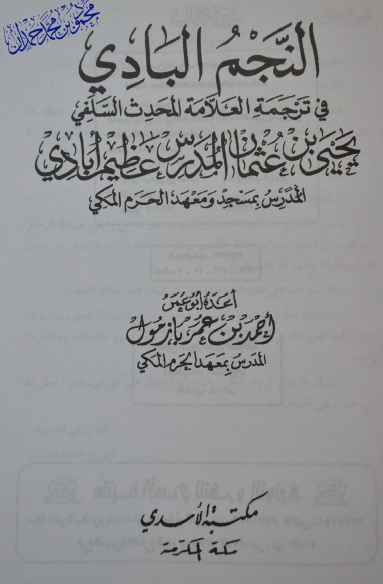 محمود بن محمد حمدان
النَّجْمُ البَادِي
في تَرجَمَةِ العَلَّامَةِ المُحَدِّثِ السَّلَفِي
يَحْيَى بْن عُثْمَان المُدَرِّسِ عَظِيم آبَادِي
المُدَرِّسُ بِمَسْجِدِ وَمَعْهَدِ الحَرَمِ المَكِّي
أعَدَّهُ أبُو عُمَر
أحْمَد بْن عُمَر بَازمُول
المُدَرِّسُ بِمَعْهَدِ الحَرَمِ المَكِّي
مكتبة الأسدي
مكة المكرمة